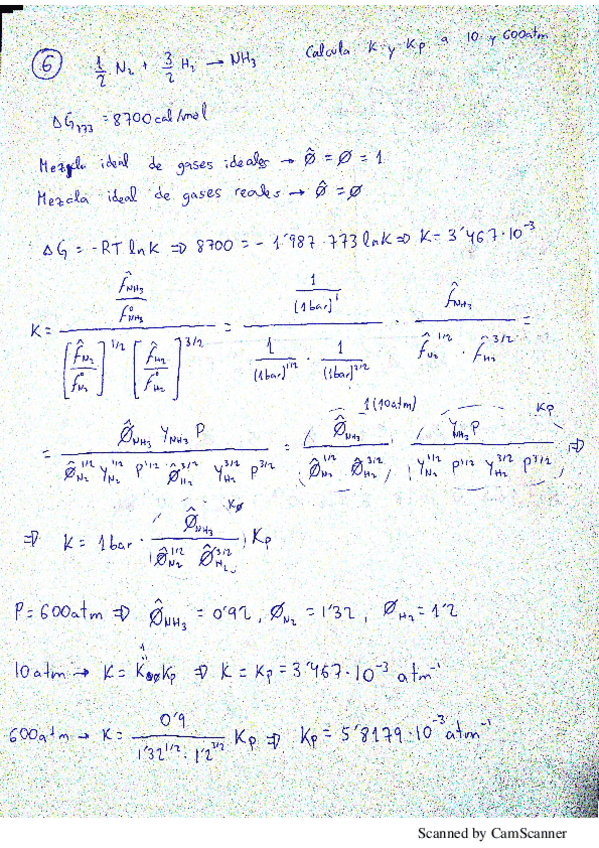 6 1/2 N₂ + 3/2 H₂ → NH₃ Calcula K y Kp a 10 y 600atm
ΔG₇₇₃ = 8700 cal/mol
Mezcla ideal de gases ideales → ∅̂ = ∅ = 1
Mezcla ideal de gases reales → ∅̂ = ∅
ΔG = -RT ln K ⇒ 8700 = - 1'987 · 773 ln K ⇒ K = 3'467·10⁻³
K = (f̂NH₃ / f°NH₃) / ([f̂N₂ / f°N₂]^1/2 [f̂H₂ / f°H₂]^3/2) = (1 / (1bar)^1) / (1/(1bar)^1/2 · 1/(1bar)^3/2) · f̂NH₃ / (f̂N₂^1/2 · f̂H₂^3/2) =
1 (10atm) Kp
= ∅̂NH₃ YNH₃ P / (∅̂N₂^1/2 YN₂^1/2 P^1/2 · ∅̂H₂^3/2 YH₂^3/2 P^3/2) = (∅̂NH₃ / (∅̂N₂^1/2 ∅̂H₂^3/2)) (YNH₃ P / (YN₂^1/2 P^1/2 YH₂^3/2 P^3/2)) ⇒
K∅
⇒ K = 1bar · (∅̂NH₃ / (∅̂N₂^1/2 ∅̂H₂^3/2)) Kp
P = 600atm ⇒ ∅̂NH₃ = 0'92, ∅N₂ = 1'32, ∅H₂ = 1'2
1
10atm → K = K∅ Kp ⇒ K = Kp = 3'467·10⁻³ atm⁻¹
600atm → K = 0'9 / (1'32^1/2 · 1'2^3/2) Kp ⇒ Kp = 5'8179·10⁻³ atm⁻¹
Scanned by CamScanner